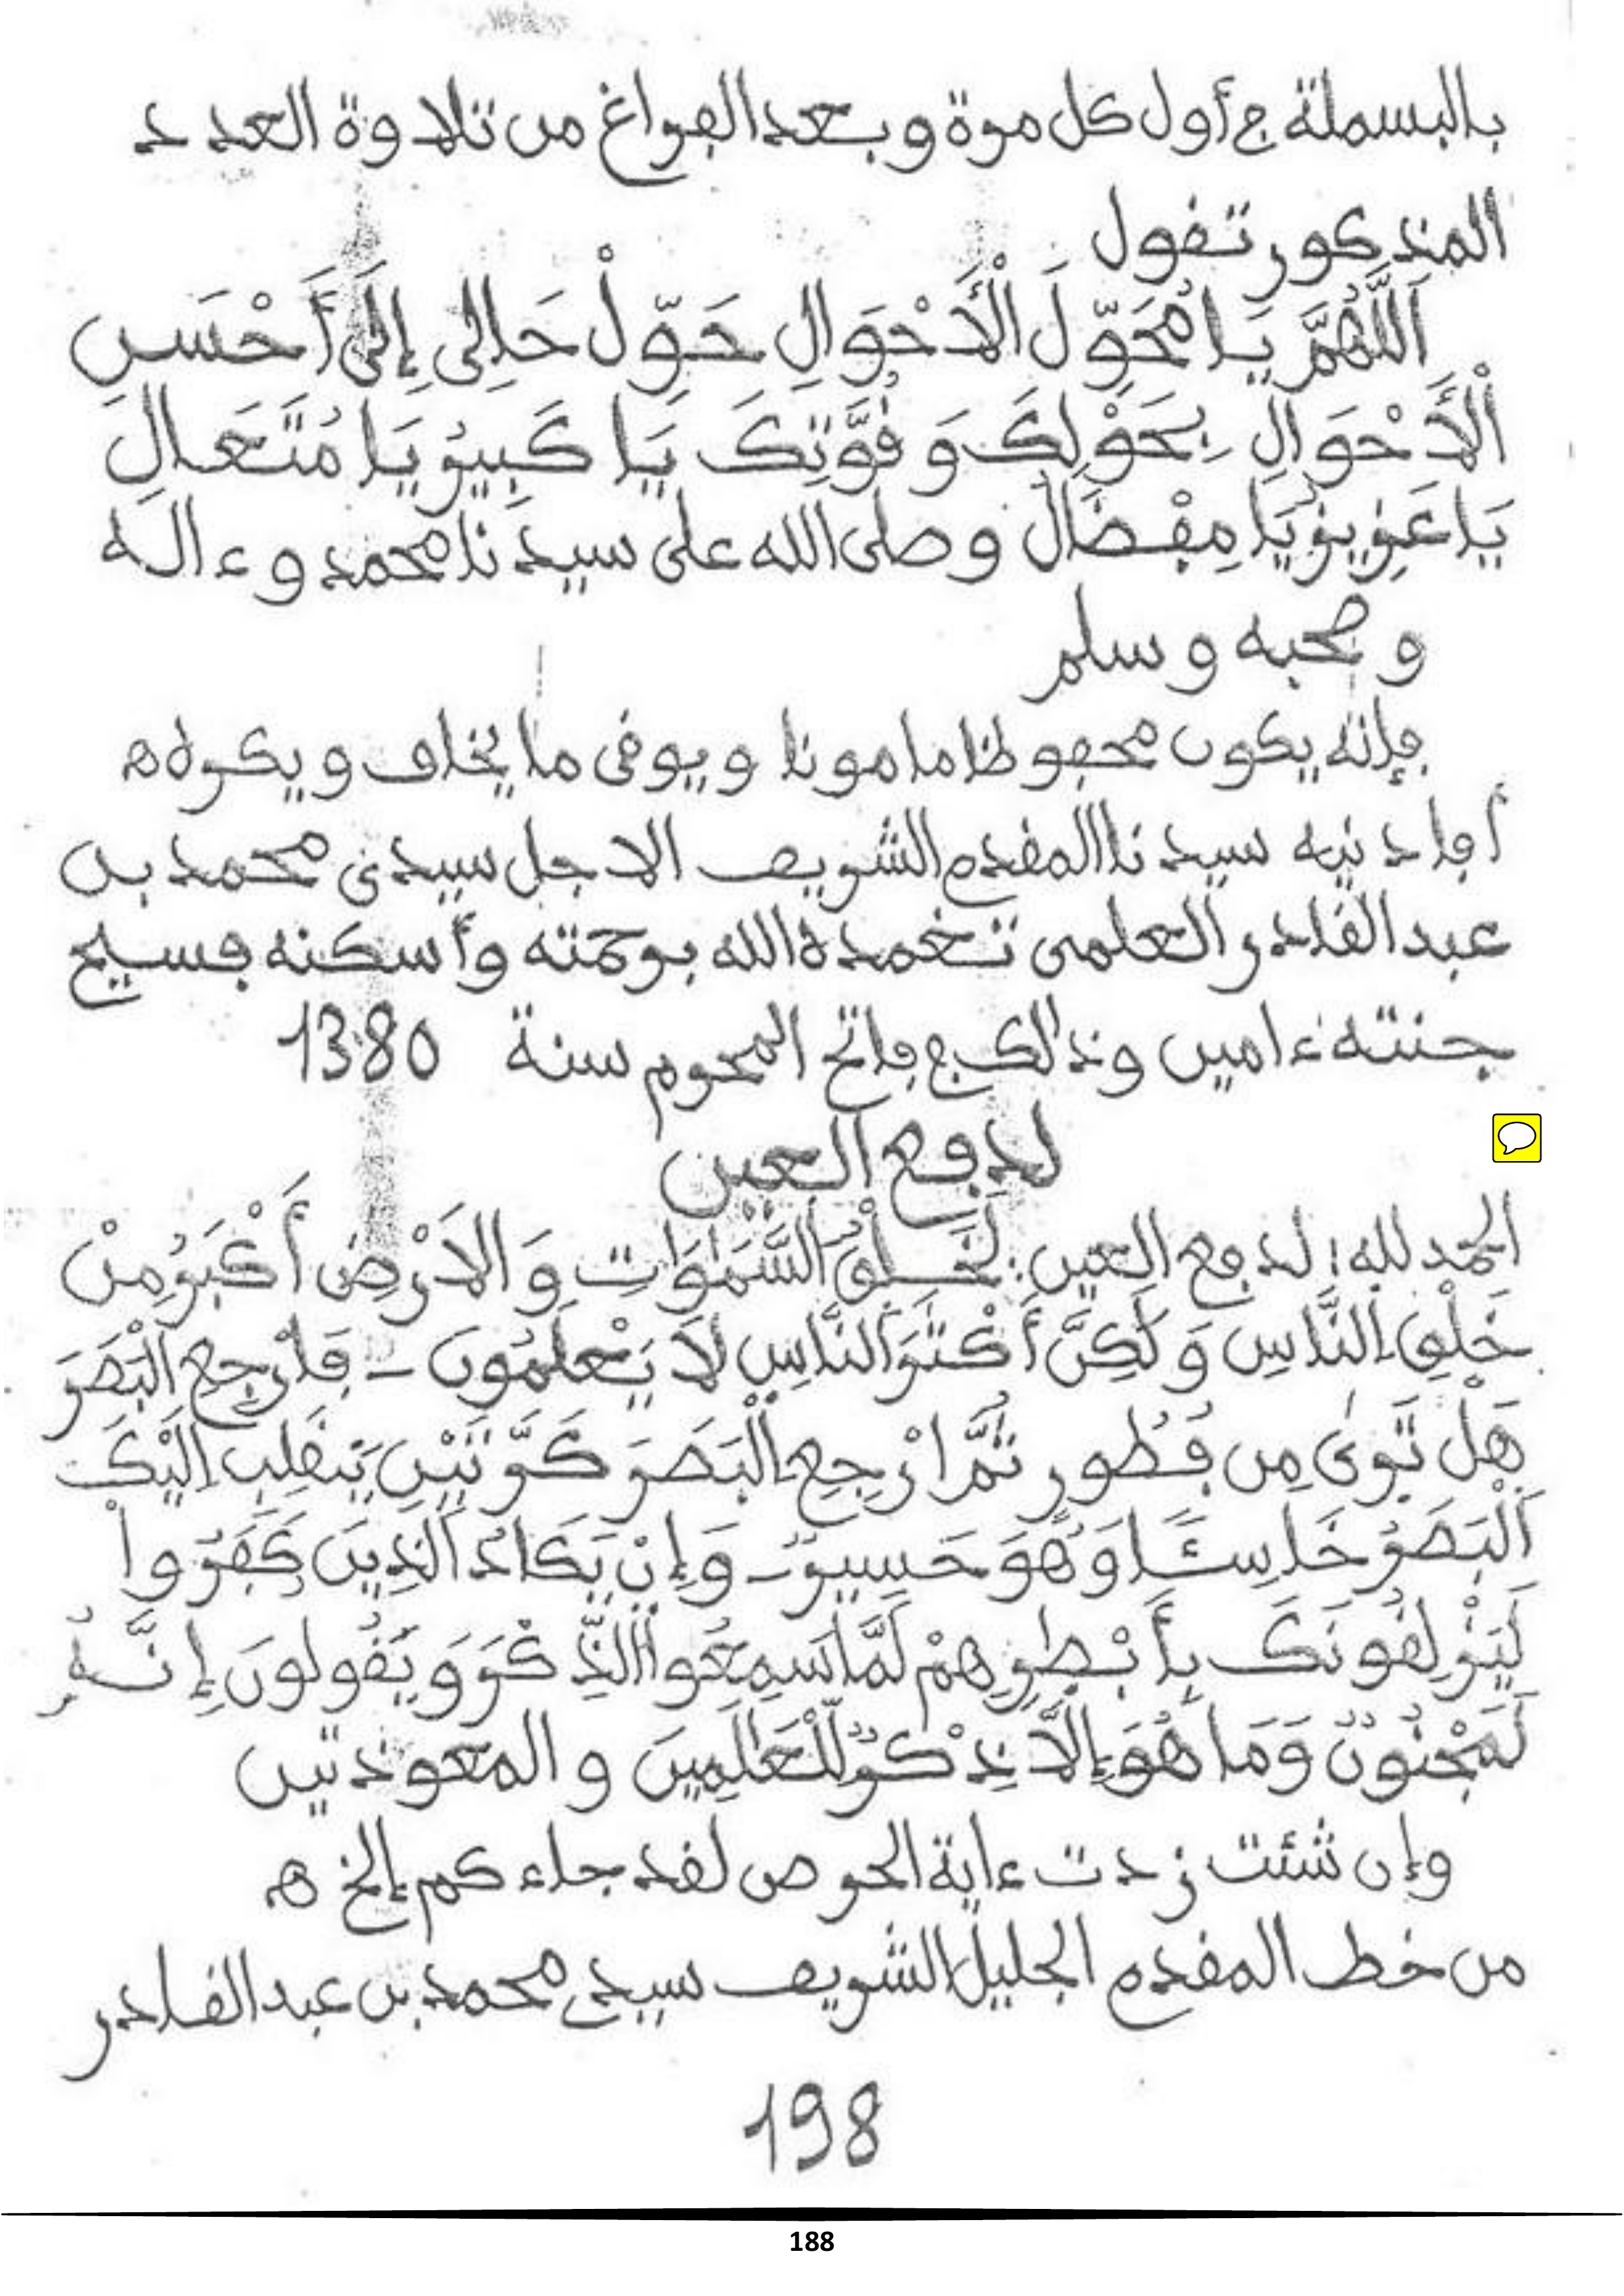 بالبسملة في أول كل مرة وبعد الفراغ من تلاوة العدد
المذكور تقول
اَللَّهُمَّ يَا مُحَوِّلَ الْأَحْوَالِ حَوِّلْ حَالِي إِلَى أَحْسَنِ
الْأَحْوَالِ بِحَوْلِكَ وَقُوَّتِكَ يَا كَبِيرُ يَا مُتَعَالِ
يَا عَزِيزُ يَا مِفْضَالُ وصلى الله على سيدنا محمد وءاله
وصحبه وسلم
فإنه يكون محفوظا مامونا ويوقى ما يخاف ويكره اه
أفادنيه سيدنا المقدم الشريف الاجل سيدي محمد بن
عبد القادر العلمي تغمده الله برحمته وأسكنه فسيح
جنته ءامين وذلك في فاتح المحرم سنة 1380
لدفع العين
الحمد لله؛ لدفع العين: لَخَلْقُ السَّمَٰوَٰتِ وَالَارْضِ أَكْبَرُ مِنْ
خَلْقِ النَّاسِ وَلَكِنَّ أَكْثَرَ النَّاسِ لَا يَعْلَمُونَ - فَارْجِعِ الْبَصَرَ
هَلْ تَرَىٰ مِن فُطُورٍ ثُمَّ ارْجِعِ الْبَصَرَ كَرَّتَيْنِ يَنقَلِبِ الَيْكَ
اَلْبَصَرُ خَاسِئًا وَهُوَ حَسِيرٌ - وَإِنْ يَكَادُ الَّذِينَ كَفَرُوا
لَيَزْلِقُونَكَ بِأَبْصٰرِهِمْ لَمَّا سَمِعُوا الذِّكْرَ وَيَقُولُونَ إِنَّهُ
لَمَجْنُونٌ وَمَا هُوَ إِلَّا ذِكْرٌ لِّلْعَٰلَمِينَ والمعوذتين
وإن شئت زدت ءاية الحرص لقد جاءكم إلخ اه
من خط المقدم الجليل الشريف سيدي محمد بن عبد القادر
198
188